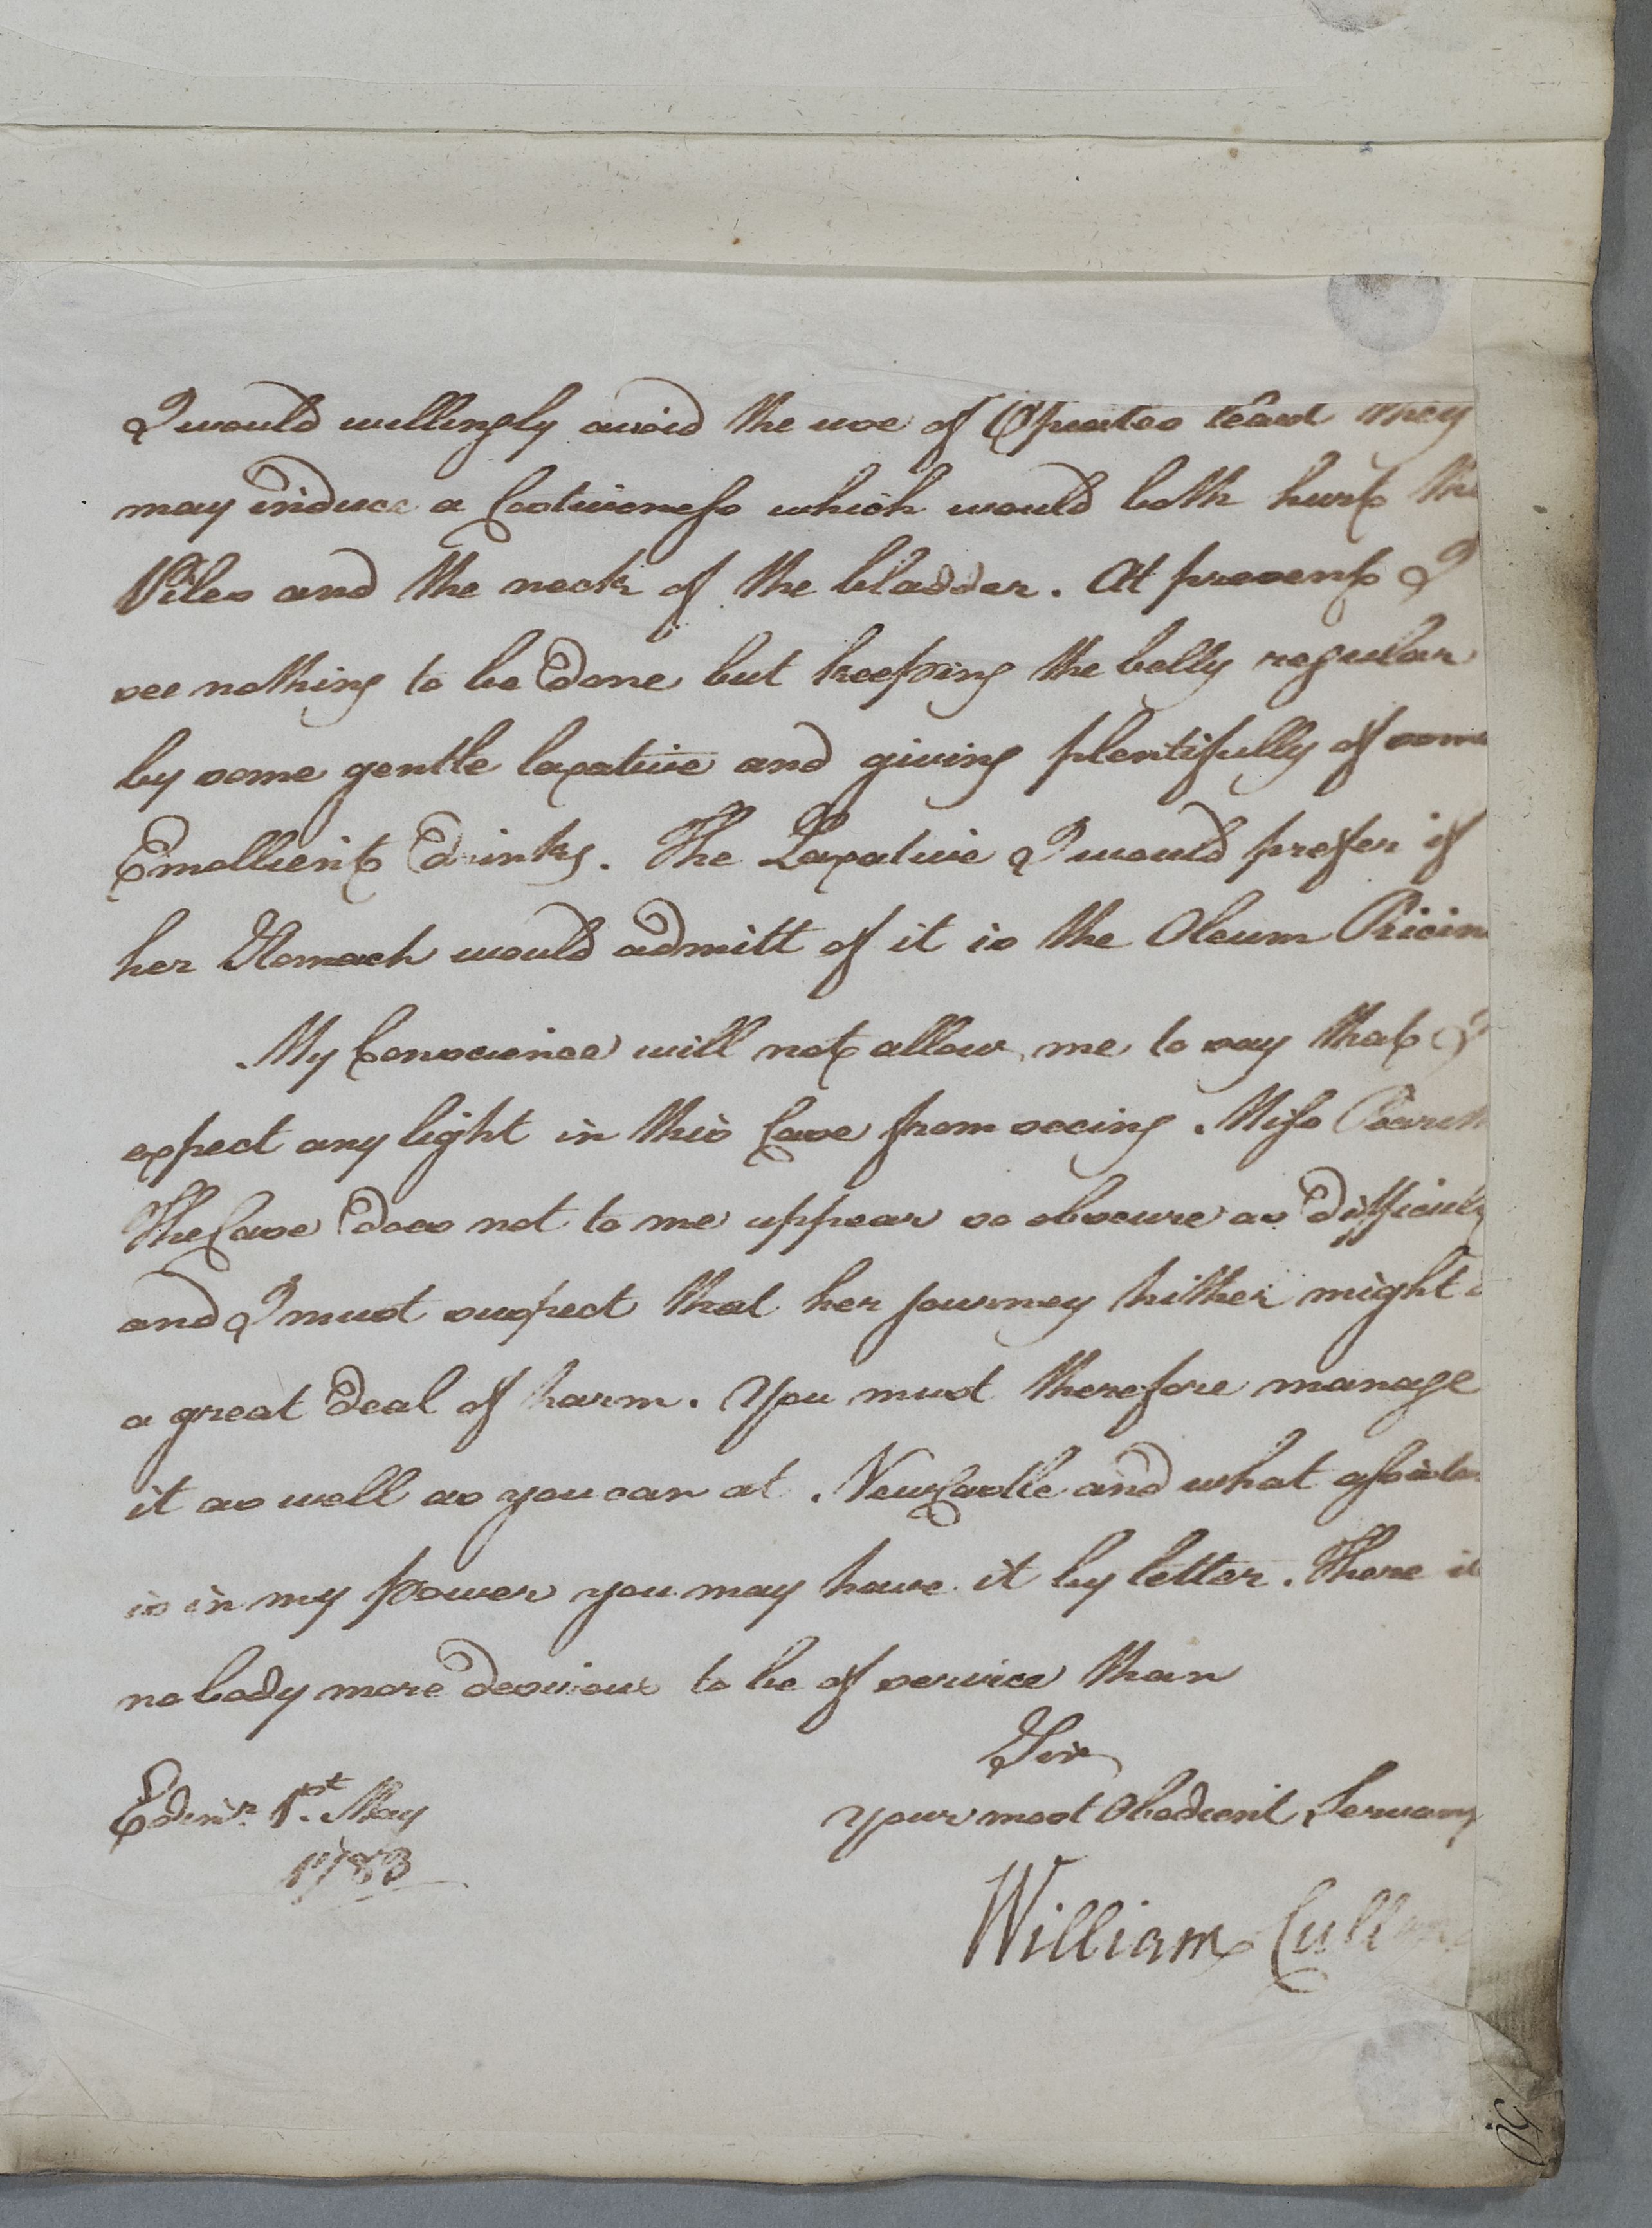 I would willingly avoid the use of Opiates least they
may induce a Costiveness which would both hurt the
Piles and the neck of the bladder. At present I
see nothing to be done but keeping the belly regular
by some gentle laxative and giving plentifully of some
Emollient drinks. The Laxative I would prefer if
her Stomach would admitt of it is the Oleum Ricin
My Conscience will not allow me to say that I
expect any light in this Case from seeing Miss
The Case does not to me appear so obscure as difficult
and I must suspect that her journey hither might
a great deal of harm. You must therefore manage
it as well as you can at NewCastle and what assistan
is in my power you may have it by letter. There is
nobody more desirous to be of service than
Sir
your most Obedient Servant
Edinr. 1st. May
1783
William Cullen